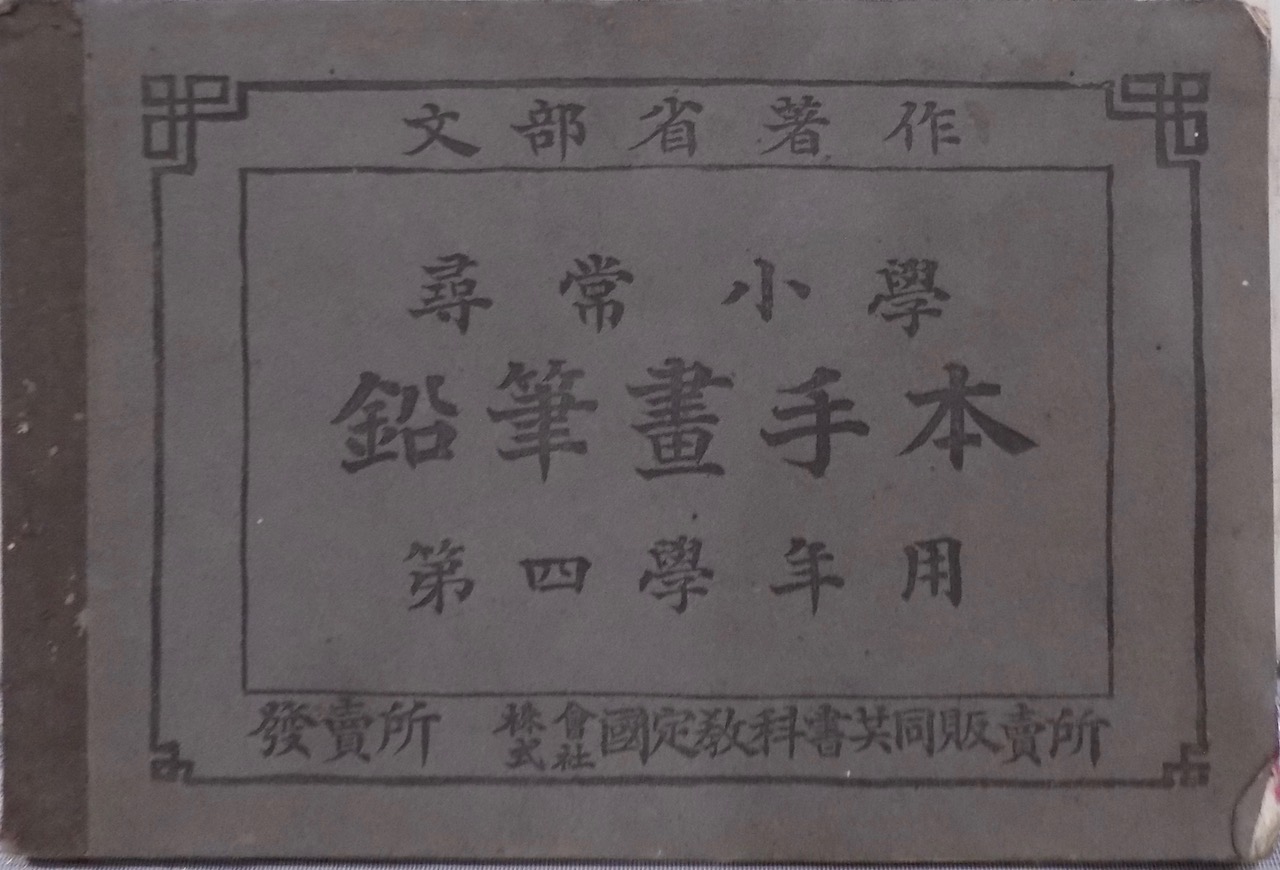 文部省著作
尋常小學
鉛筆畫手本
第四學年用
發賣所 株式會社國定敎科書共同販賣所